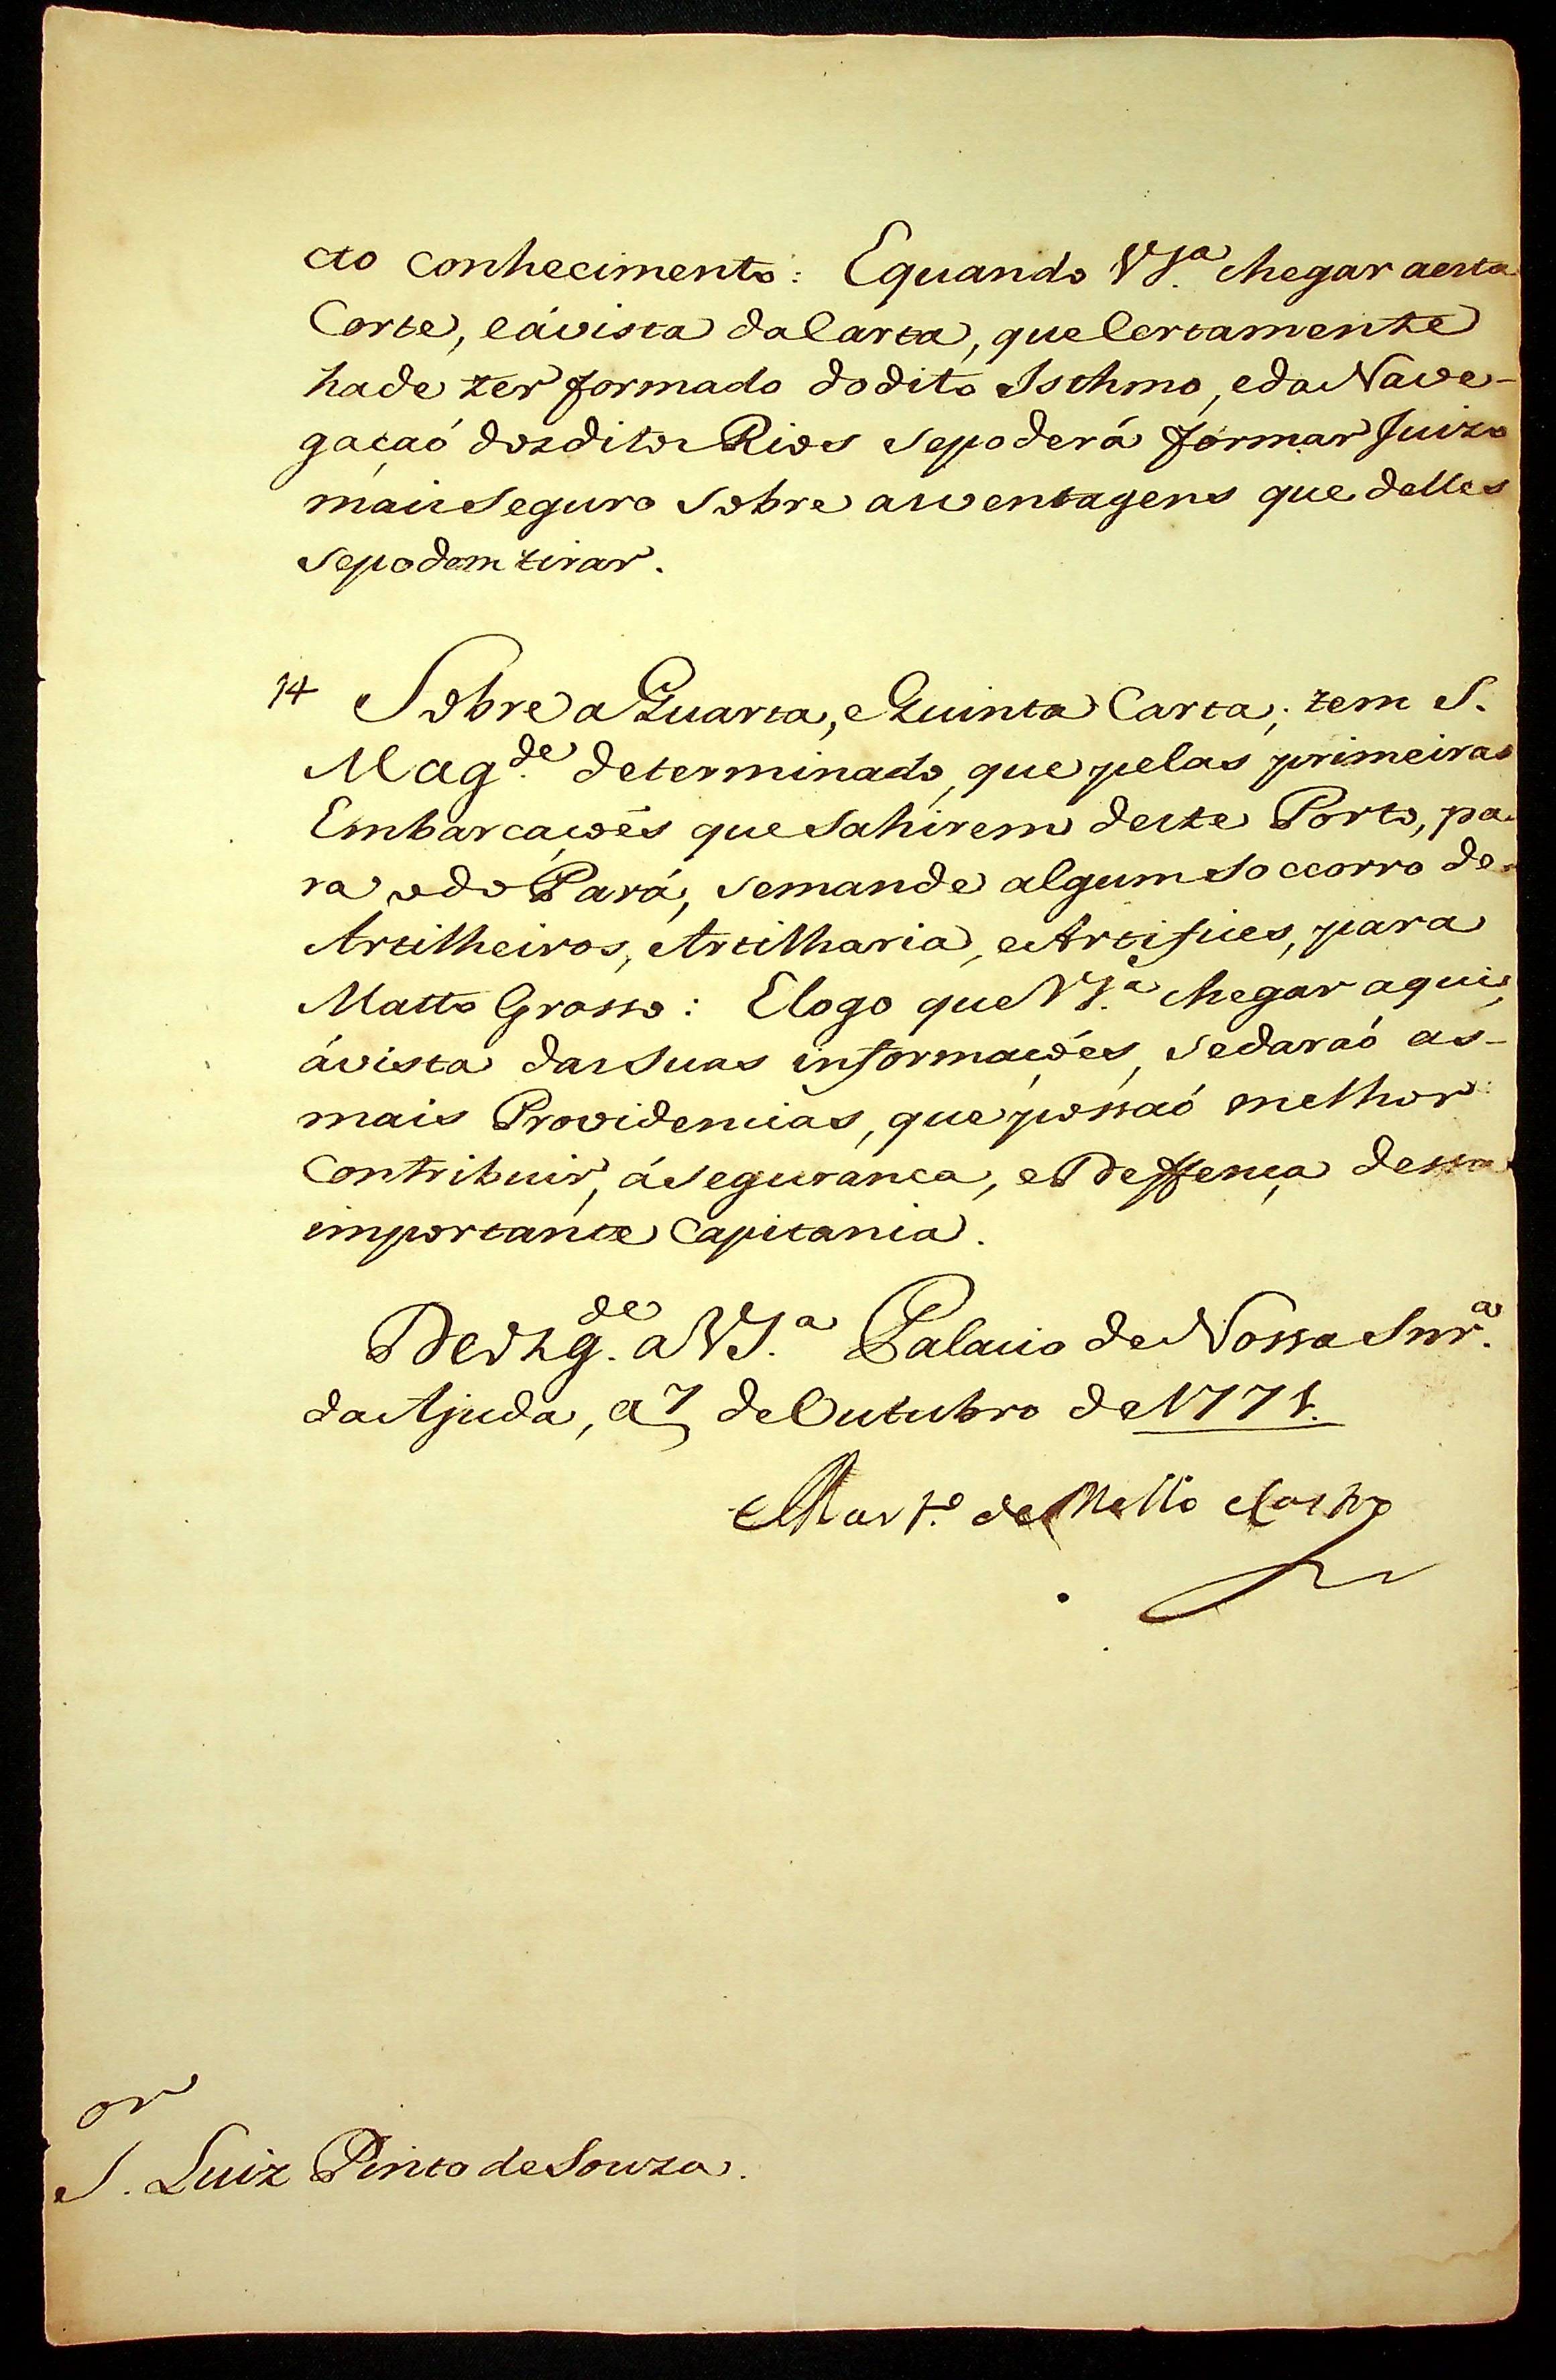 cto conhecimento: Equando VS.ª chegar aesta
Corte, eávista daCarta, queCertamente
hade ter formado dodito Isthmo, edaNave-
gaçaõ dosditos Rios sepoderá formar Juizo
maisSeguro Sobre asventagens que delles
sepodem tirar.
14 Sobre a Quarta, e Quinta Carta; tem S.
Mag.de determinado, que pelas primeiras
Embarcaçoẽs que Sahirem deste Porto, pa-
ra odo Pará, semande algum Soccorro de
Artilheiros, Artilharia, e Artifices, para
Matto Grosso: Elogo que VS.ª chegar aqui,
ávista dasSuas informaçoẽs, sedaraõ as-
mais Providencias, que possaõ melhor
Contribuir, áSegurança, e Deffença dessa
importante Capitania.
Deos g.de a VS.ª Palacio de Nossa Snr.ª
da Ajuda, a 7 de Outubro de 1771.
Mart.º de Mello e Castro
S.or Luiz Pinto de Souza.